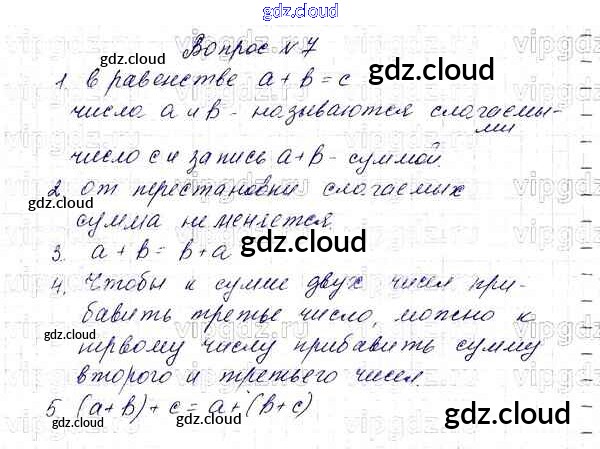 gdz.cloud
Вопрос №7
1. В равенстве a + b = c
числа a и b - называются слагаемы-
ми
число c и запись a+b - суммой.
2. от перестановки слагаемых
сумма не меняется.
3. a + b = b + a
4. Чтобы к сумме двух чисел при-
бавить третье число, можно к
первому числу прибавить сумму
второго и третьего чисел.
5. (a+b)+c = a+(b+c)
gdz.cloud
gdz.cloud
gdz.cloud
gdz.cloud
gdz.cloud
gdz.cloud
gdz.cloud
gdz.cloud
gdz.cloud